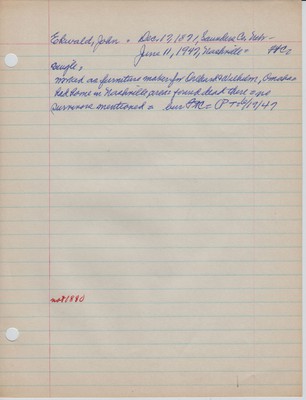 Ekwald, John = Dec. 17, 1871, Saunders Co, Nebr =
June 11, 1947, Kirashville = PHC=
Single,
worked as furniture maker for Orchard & Wilhelm, Omaha =
had home in area = found dead there = no
survivors mentioned = bur PHC = (P T 6/19/47
not 1880